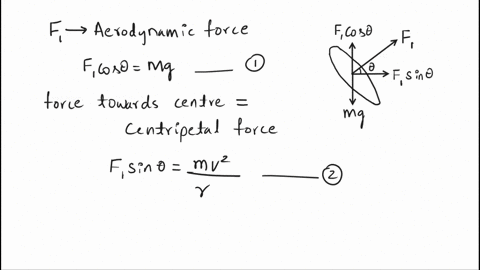 F₁ → Aerodynamic force
F₁cosθ = Mg —— ①
force towards centre =
Centripetal force
F₁ sinθ = mv²/r —— ②
F₁cosθ
F₁
θ
F₁sinθ
Mg